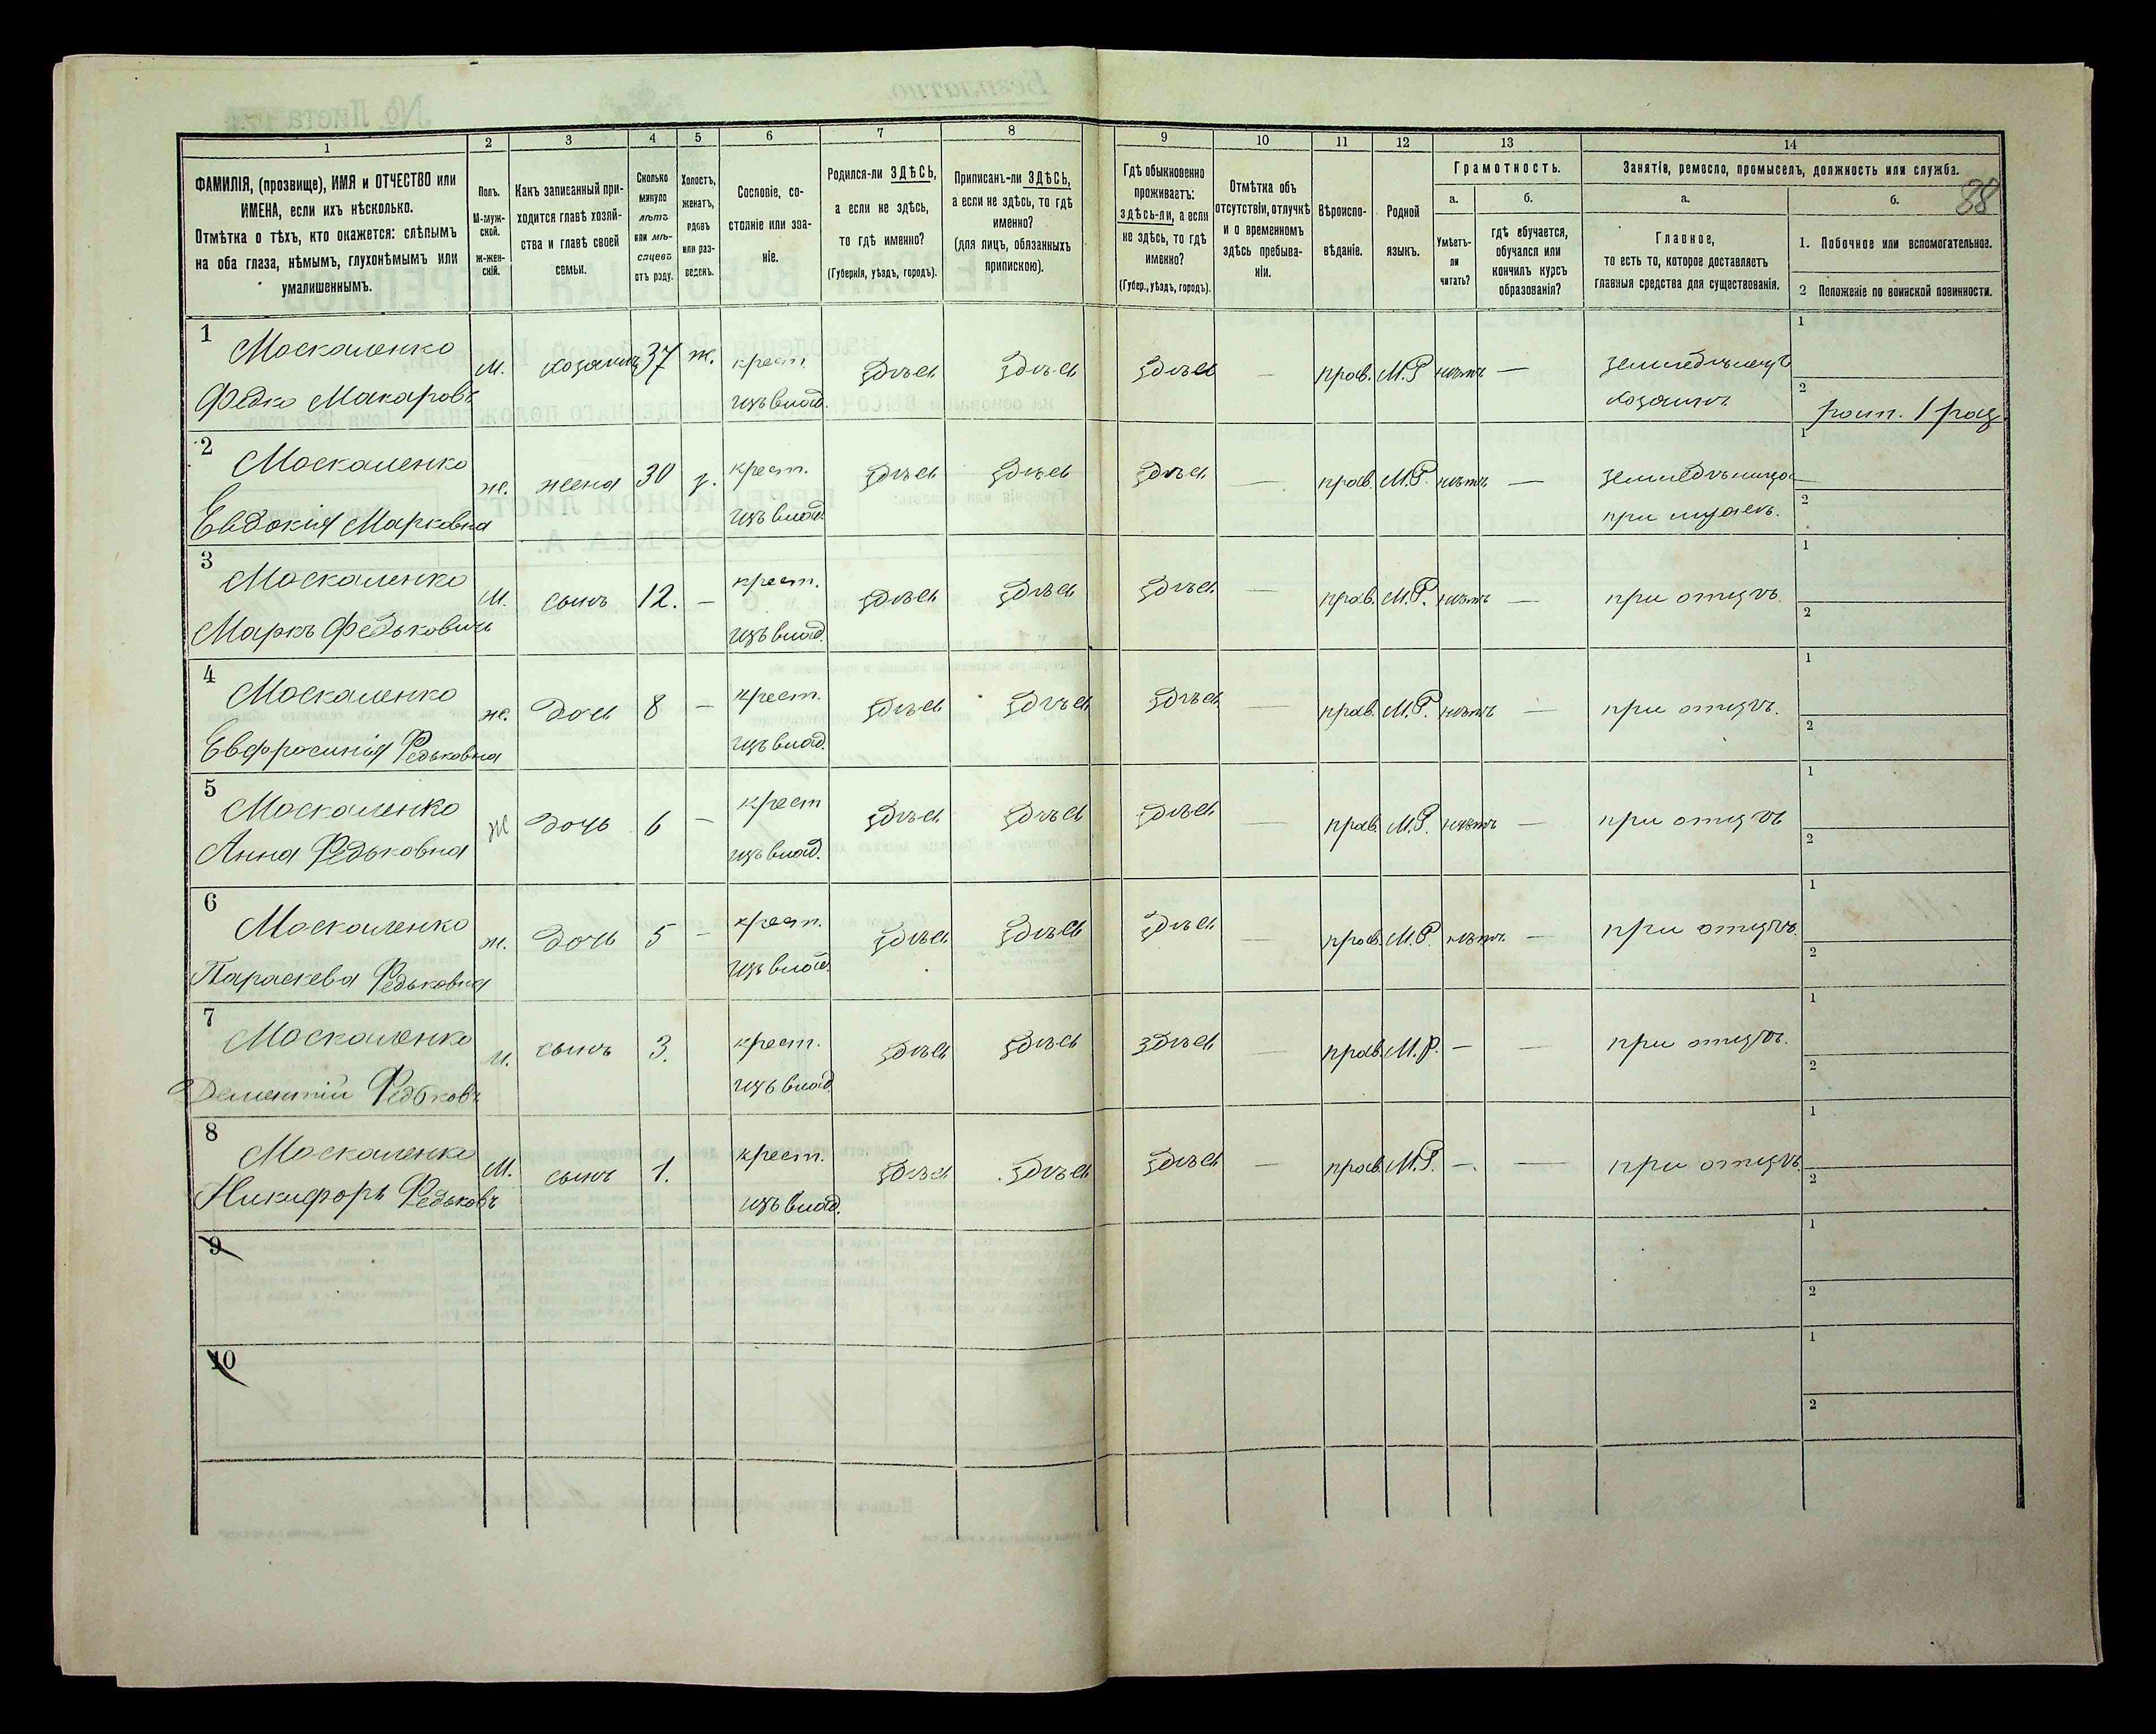 88
1 2 3 4 5 6 7 8 9 10 11 12 13 14
ФАМИЛІЯ, (прозвище), ИМЯ и ОТЧЕСТВО или
ИМЕНА, если ихъ нѣсколько.
Отмѣтка о тѣхъ, кто окажется: слѣпымъ
на оба глаза, нѣмымъ, глухонѣмымъ или
умалишеннымъ.
Полъ.
М-муж-
ской.
Ж-жен-
скій.
Какъ записанный при-
ходится главѣ хозяй-
ства и главѣ своей
семьи.
Сколько
минуло
лѣтъ
или мѣ-
сяцевъ
отъ роду.
Холостъ,
женатъ,
вдовъ
или раз-
веденъ.
Сословіе, со-
стояніе или зва-
ніе.
Родился-ли ЗДѢСЬ,
а если не здѣсь,
то гдѣ именно?
(Губернія, уѣздъ, городъ).
Приписанъ-ли ЗДѢСЬ,
а если не здѣсь, то гдѣ
именно?
(для лицъ, обязанныхъ
припискою).
Гдѣ обыкновенно
проживаетъ:
здѣсь-ли, а если
не здѣсь, то гдѣ
именно?
(Губер., уѣздъ, городъ).
Отмѣтка объ
отсутствіи, отлучкѣ
и о временномъ
здѣсь пребыва-
ніи.
Вѣроиспо-
вѣданіе.
Родной
языкъ.
Грамотность.
а.
Умѣетъ-
ли
читать?
б.
гдѣ обучается,
обучался или
кончилъ курсъ
образованія?
Занятіе, ремесло, промыселъ, должность или служба.
а.
Главное,
то есть то, которое доставляетъ
главныя средства для существованія.
б.
1. Побочное или вспомогательное.
2 Положеніе по воинской повинности.
1 Москаленко М. хозяинъ 37 ж. крест. здѣсь здѣсь здѣсь — прав. М.Р. нѣтъ — земледѣлецъ 1
Федко Макаровъ изъ влад. хозяинъ 2 ратн. 1 раз
2 Москаленко ж. жена 30 з. крест. здѣсь здѣсь здѣсь — прав. М.Р. нѣтъ — 1
Евдокия Марковна изъ влад. при мужѣ. 2
3 Москаленко М. сынъ 12. — крест. здѣсь здѣсь здѣсь — прав. М.Р. нѣтъ — при отцѣ 1
Маркъ Федьковичъ изъ влад. 2
4 Москаленко ж. дочь 8 — крест. здѣсь здѣсь здѣсь — прав. М.Р. нѣтъ — при отцѣ. 1
Евфросинія Федьковна изъ влад. 2
5 Москаленко ж дочь 6 — крест здѣсь здѣсь здѣсь — прав. М.Р. нѣтъ — при отцѣ 1
Анна Федьковна изъ влад. 2
6 Москаленко ж. дочь 5 — крест. здѣсь здѣсь здѣсь — прав. М.Р. нѣтъ — при отцѣ. 1
Параскева Федьковна изъ влад. 2
7 Москаленко М. сынъ 3. крест. здѣсь здѣсь здѣсь — прав. М.Р. — — при отцѣ. 1
Дементій Федьковъ изъ влад. 2
8 Москаленко М. сынъ 1. крест. здѣсь здѣсь здѣсь — прав. М.Р. — — при отцѣ 1
Никифоръ Федьковъ изъ влад. 2
9 1
2
10 1
2